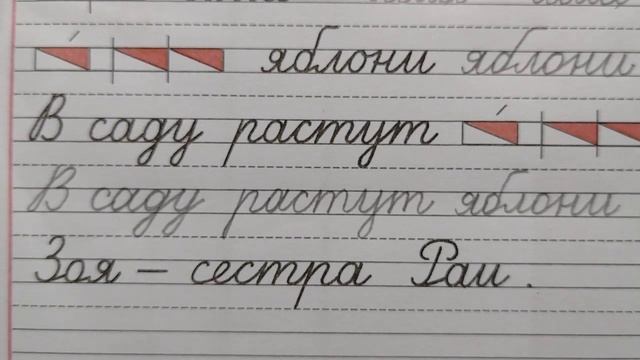 яблони яблони
В саду растут
В саду растут яблони
Зоя – сестра Раи.